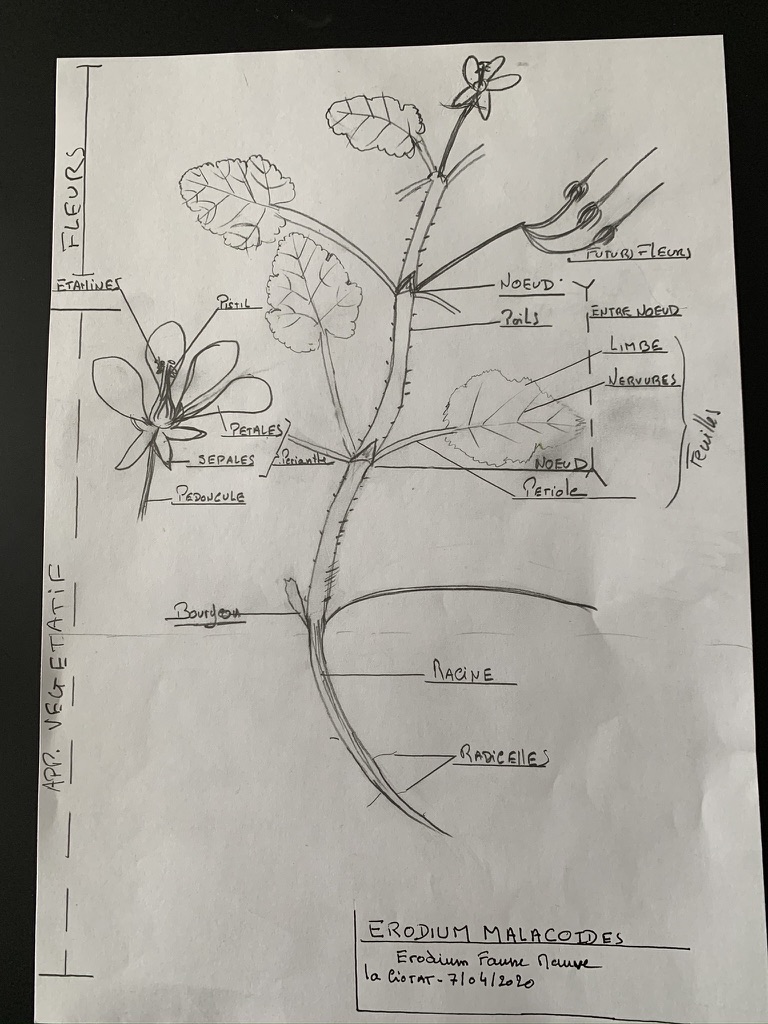 FLEURS
FUTURS FLEURS
ETAMINES
NOEUD
PISTIL
ENTRE NOEUD
POILS
LIMBE
NERVURES
Feuilles
PETALES
SEPALES
Perianthe
NOEUD
PETIOLE
PEDONCULE
APP. VEGETATIF
Bourgeon
RACINE
RADICELLES
ERODIUM MALACOIDES
Erodium Fausse Mauve
la CIOTAT - 7/04/2020